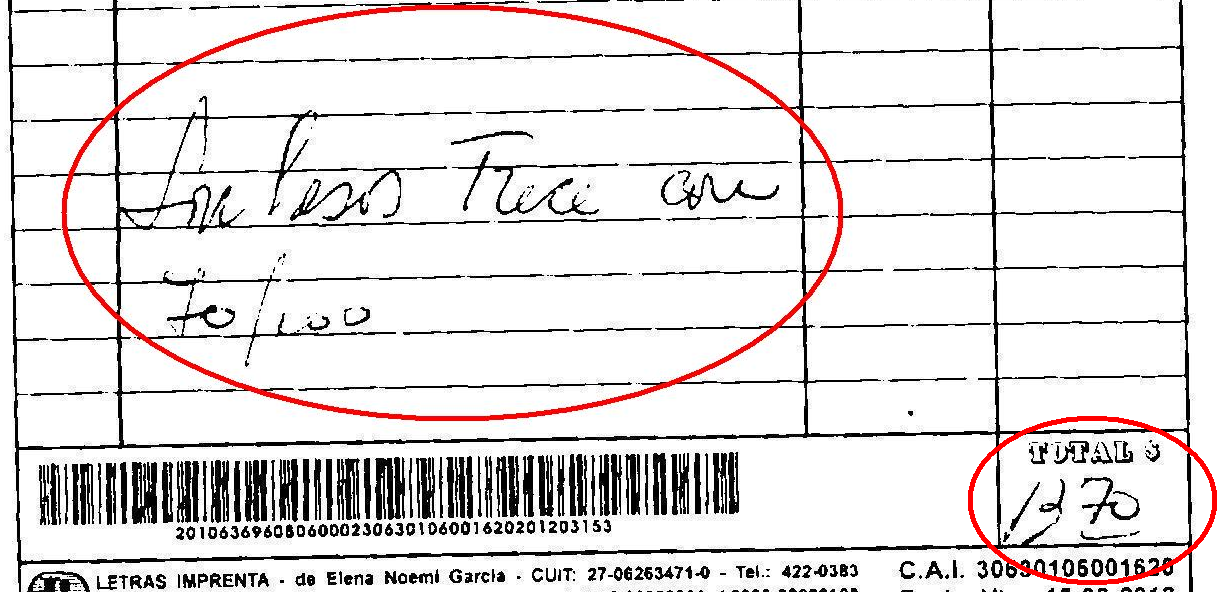 Son Pesos Trece con
70/100
TOTAL $
13 70
2010636960806000230630106001620201203153
LETRAS IMPRENTA - de Elena Noemi Garcia - CUIT: 27-06263471-0 - Tel.: 422-0383
C.A.I. 30630106001620